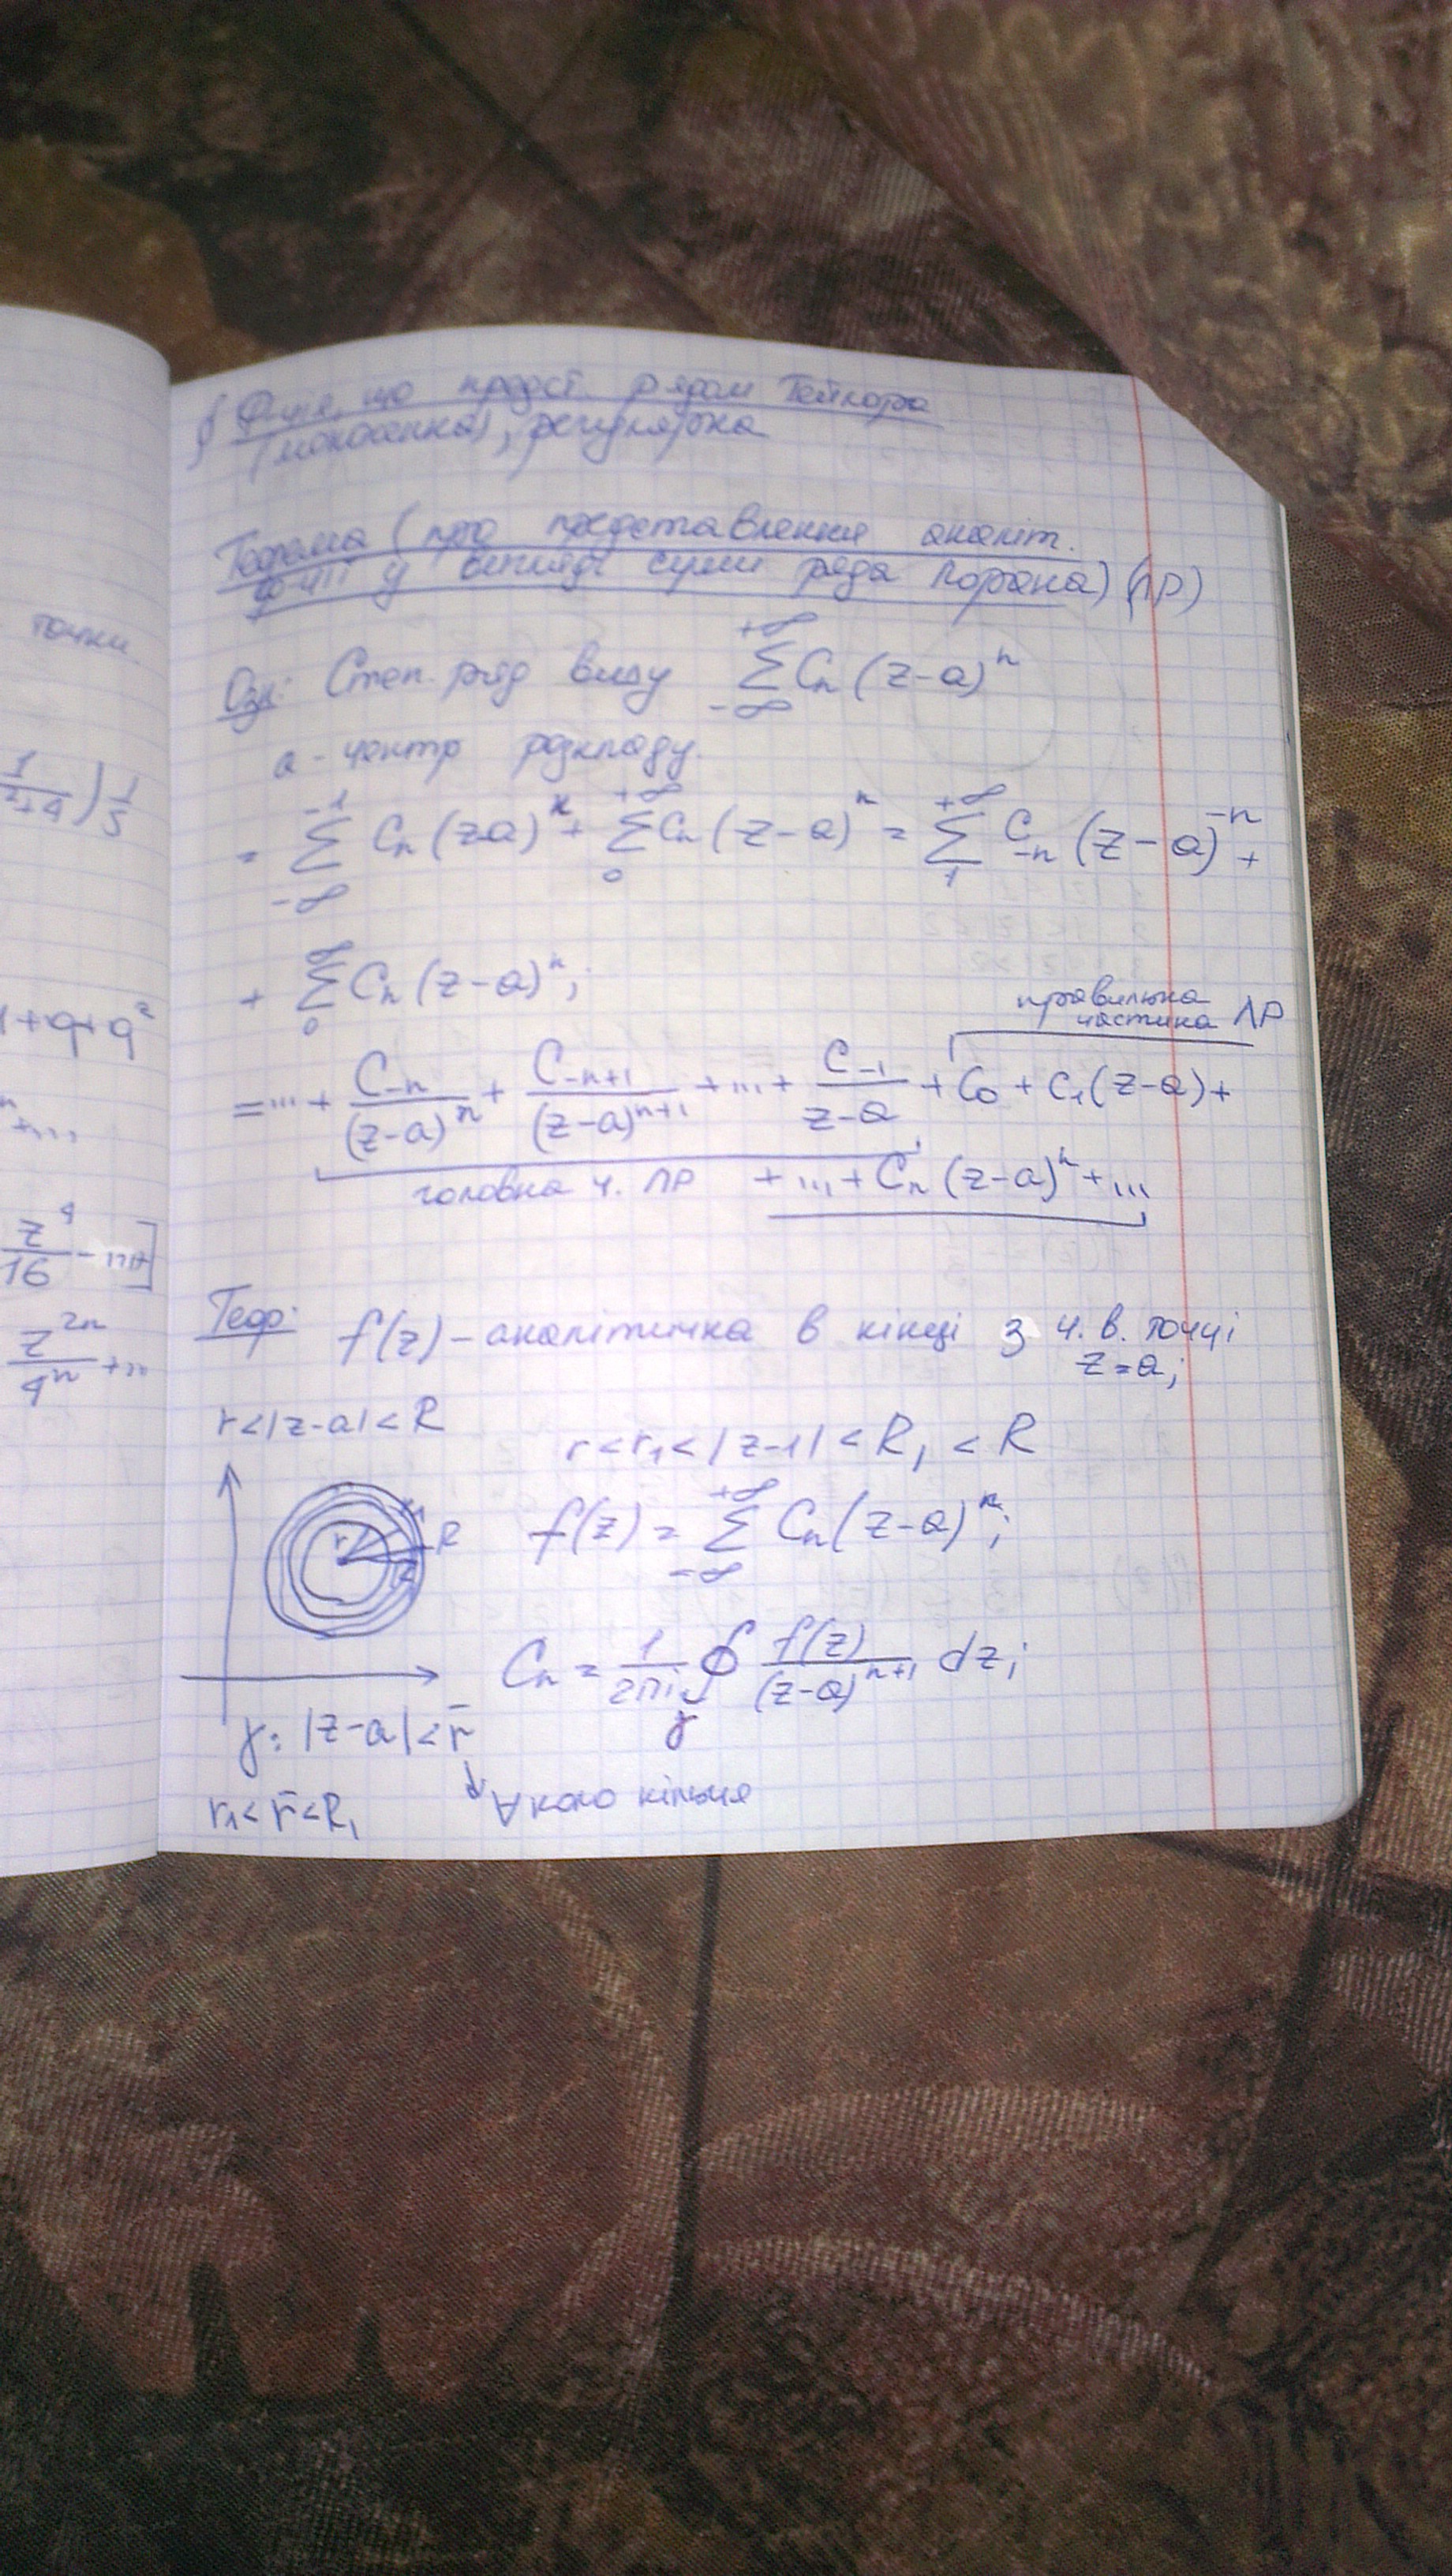 точки
1/(z+4)) 1/5
1+q+q²
+...
z⁴/16 - ...]
z²ⁿ/4ⁿ + ...
§ Ф-ція, що предст. рядом Тейлора
, регулярна
Теорема (про представлення аналіт.
ф-ції у вигляді суми ряда Лорана) (ЛР)
Озн: Степ. ряд виду +∞ Σ -∞ Cₙ (z-a)ⁿ
a - центр розкладу.
= -1 Σ -∞ Cₙ (z-a)ⁿ + +∞ Σ 0 Cₙ (z-a)ⁿ = +∞ Σ 1 C₋ₙ (z-a)⁻ⁿ +
+ ∞ Σ 0 Cₙ (z-a)ⁿ;
правильна
частина ЛР
= ... + C₋ₙ/(z-a)ⁿ + C₋ₙ₊₁/(z-a)ⁿ⁺¹ + ... + C₋₁/(z-a) + C₀ + C₁(z-a) +
головна ч. ЛР + ... + Cₙ (z-a)ⁿ + ...
Теор: f(z) - аналітична в кінці з ч. в. точці
z=a;
r<|z-a|<R
r<r₁<|z-1|<R₁<R
r R
f(z) = +∞ Σ -∞ Cₙ (z-a)ⁿ;
Cₙ = 1/2πi ∮ γ f(z)/(z-a)ⁿ⁺¹ dz;
γ: |z-a|<r̄
r₁<r̄<R₁
∀ кого кільця